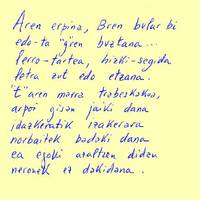 Aren erpina, Bren bular bi
edo-ta "g"ren buztana...
Lerro-tartea, hizki-segida
letra zut edo etzana.
"t"aren marra trabeskakoa,
arpoi gisan jaiki dana
idazkeratik izakerara
norbaitek badaki dana
ea egoki azaltzen didan
neronek ez dakidana.